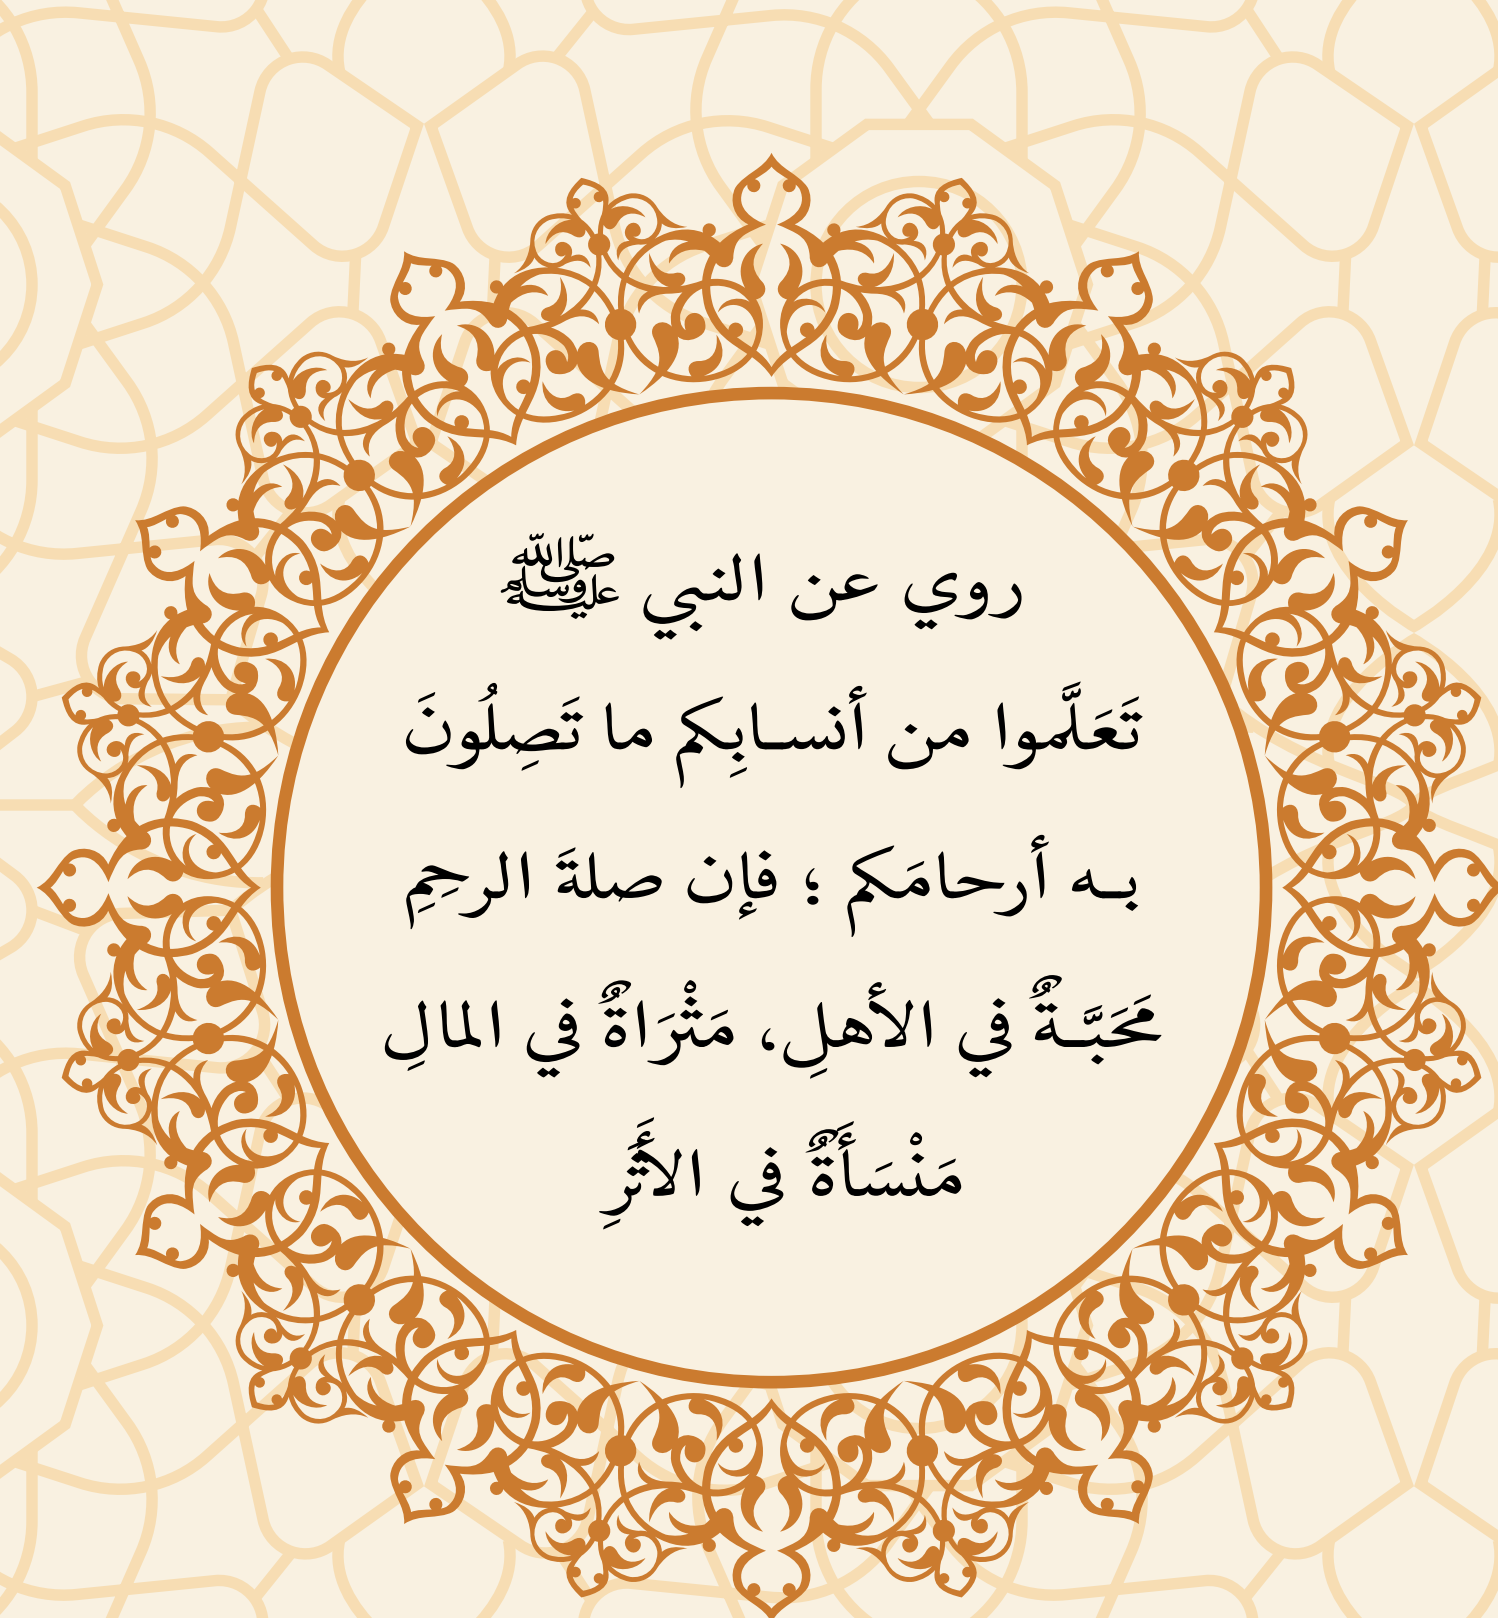 روي عن النبي ﷺ
تَعَلَّموا من أنسـابِكم ما تَصِلُونَ
بـه أرحامَكم ؛ فإن صلةَ الرحِمِ
مَحَبَّـةٌ في الأهلِ، مَثْرَاةٌ في المالِ
مَنْسَأَةٌ في الأَثَرِ